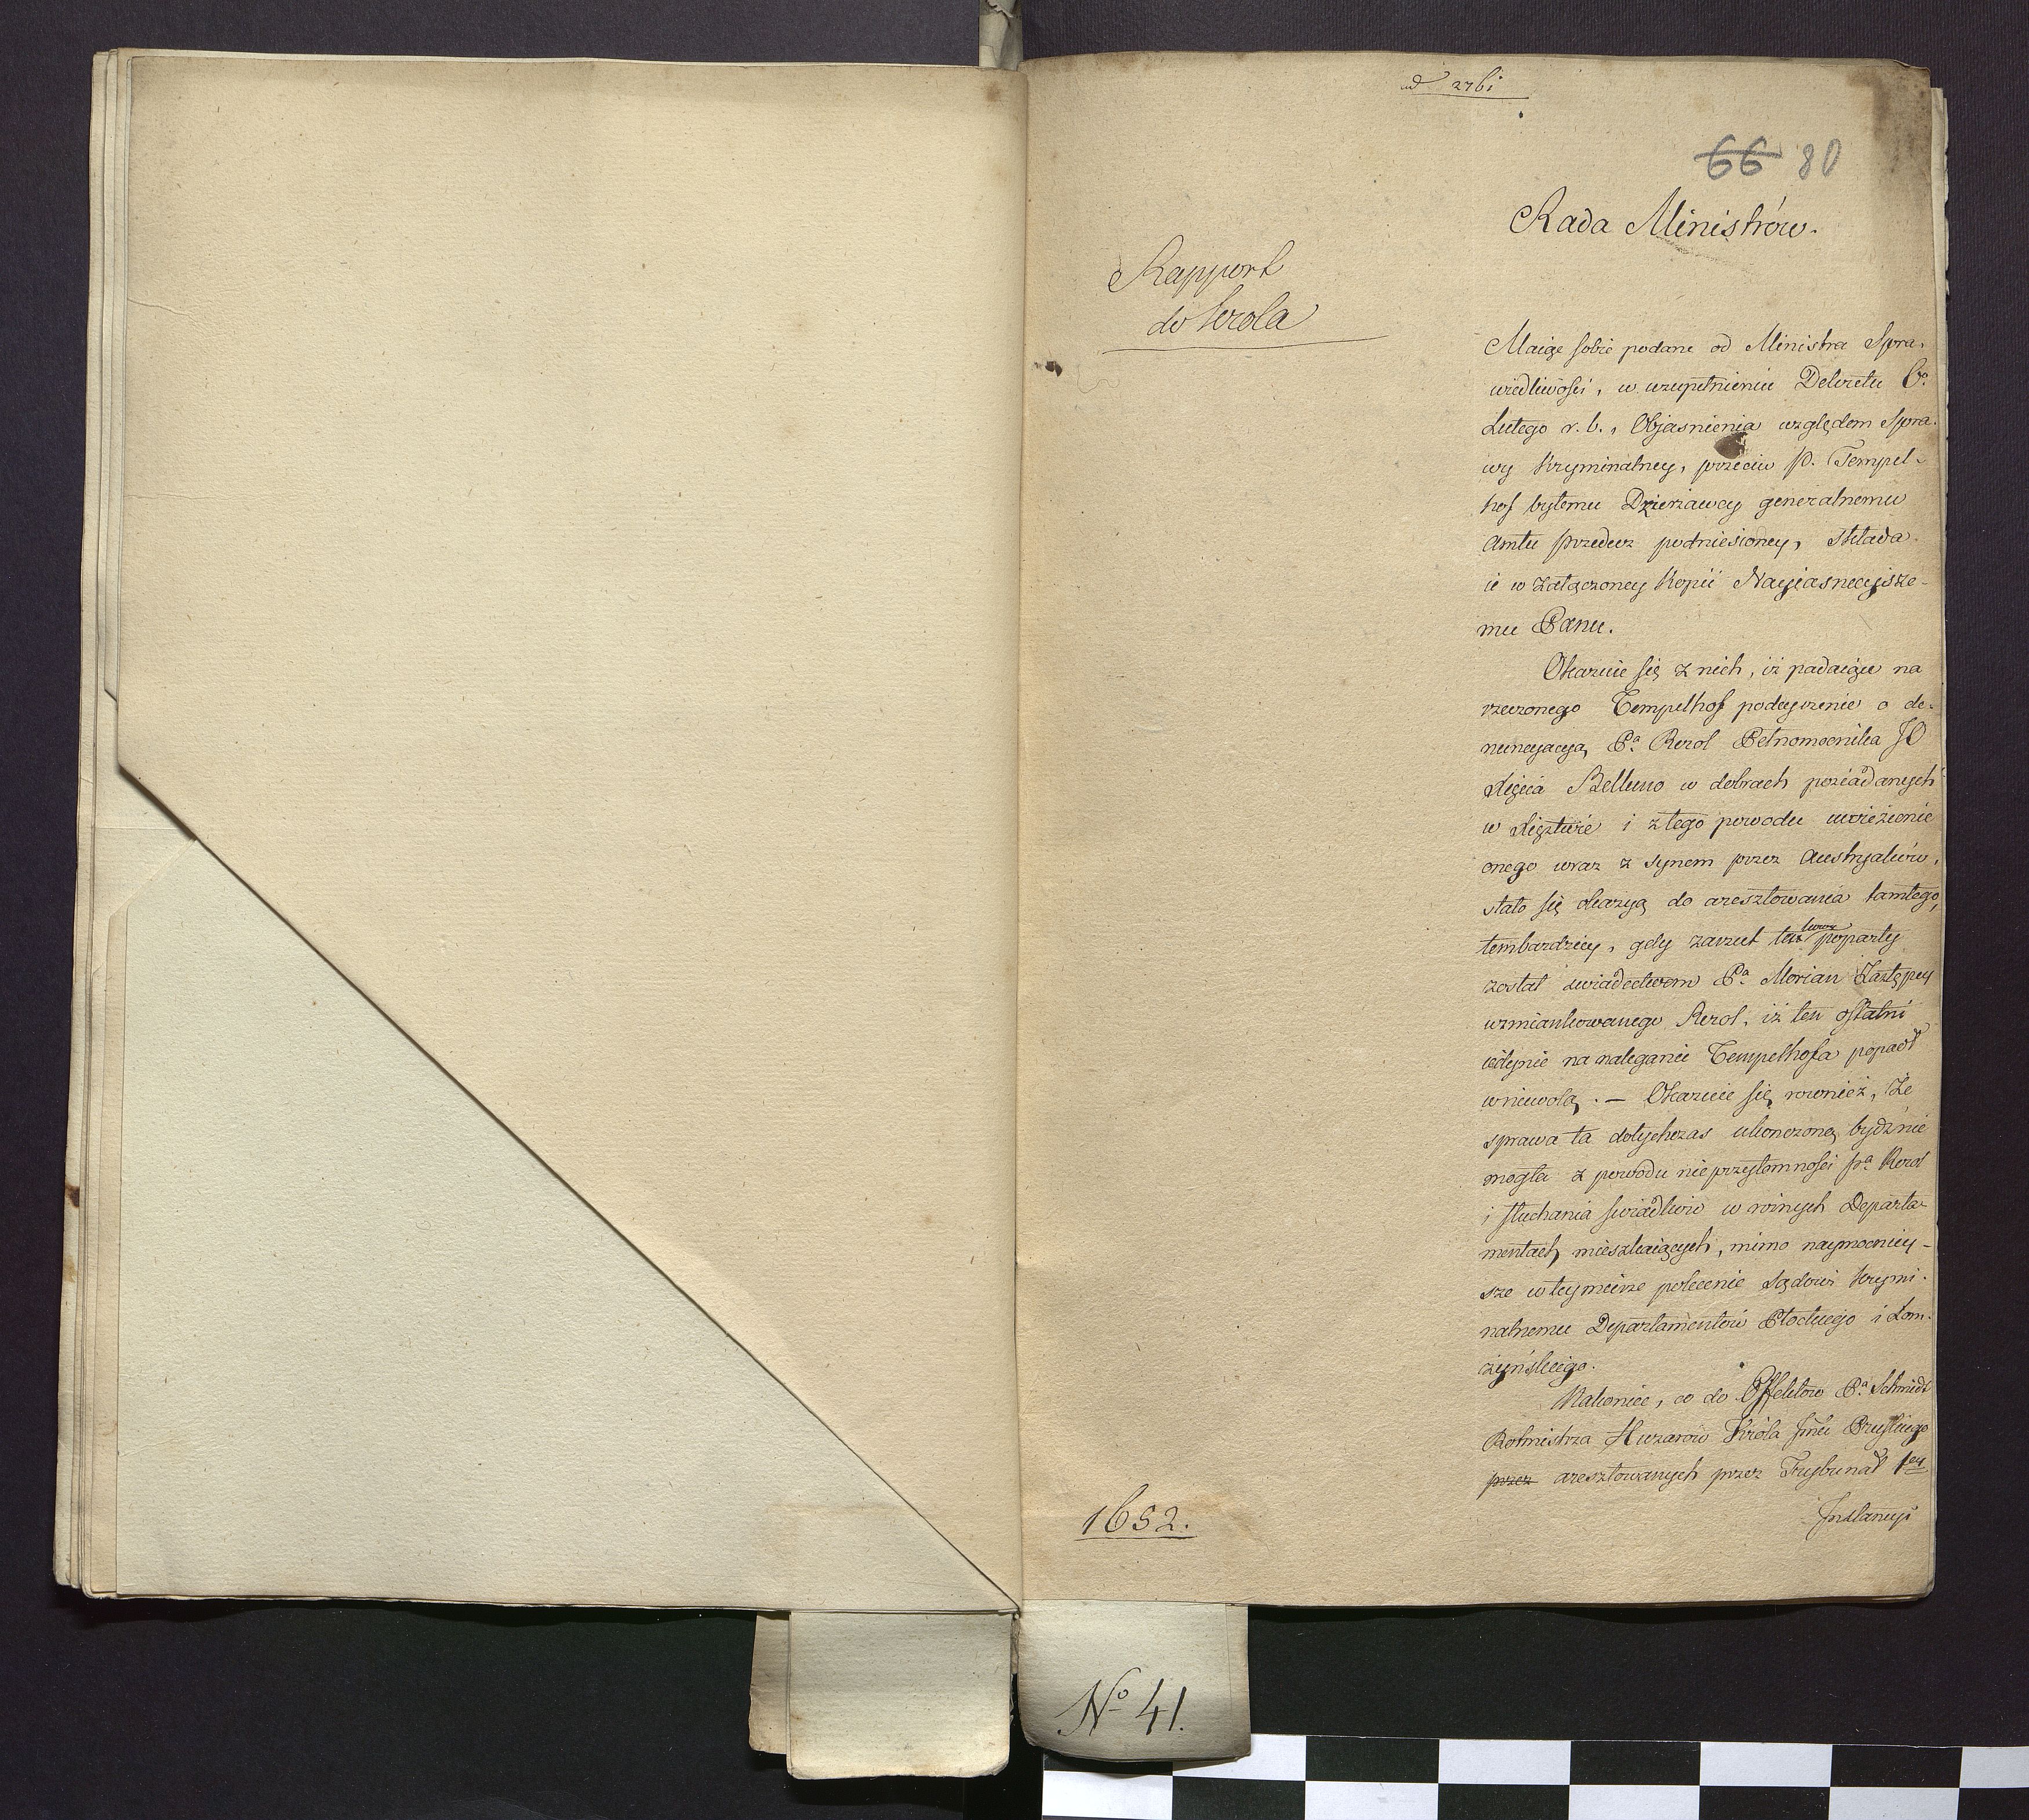 ad 2761
66 80
Rada Ministrów.
Rapport
do Krola
Maiąc sobie podane od Ministra Spra-
wiedliwości, w uzupełnieniu Dekretu 6°
Lutego r. b., Objasnienia względem Spra-
wy kryminalney, przeciw P. Tempel-
hof byłemu Dzierżawcy generalnemu
Amtu Przedecz podniesioney, składa
ie w załączoney kopii Nayiasnieysze-
mu Panu.
Okazuie się z nich, iż padaiące na
rzeczonego Tempelhof podeyrzenie o de-
nuncyacyą Pa Rerol Pełnomocnika JO
Xięcia Belluno w dobrach posiadanych
w Xięztwie i z tego powodu uwiężienie
onego wraz z synem przez Austryaków,
stało się okazyą do aresztowania tamtego,
tembardziey, gdy zarzut ten poparty
został swiadectwem Pa Morian Zastępcy
wzmiankowanego Rerol, iż ten ostatni
iedynie na naleganie Tempelhofa popadł
w niewolą. — Okazuie się rownież, że
sprawa ta dotychczas ukonczoną bydź nie
mogła z powodu nieprzytomności Pa Rerol
i słuchania swiadków w roznych Departa-
mentach mieszkaiących, mimo naymocniey-
sze w teymierze polecenie Sądowi krymi-
nalnemu Departamentów Płockiego i Łom-
żyńskiego.
Nakoniec, co do Effektów Pa Schmidt
Rotmistrza Huzarów Króla Jmci Pruskiego
przez aresztowanych przez Trybunał 1ey
Instancyi
1652.
No 41.